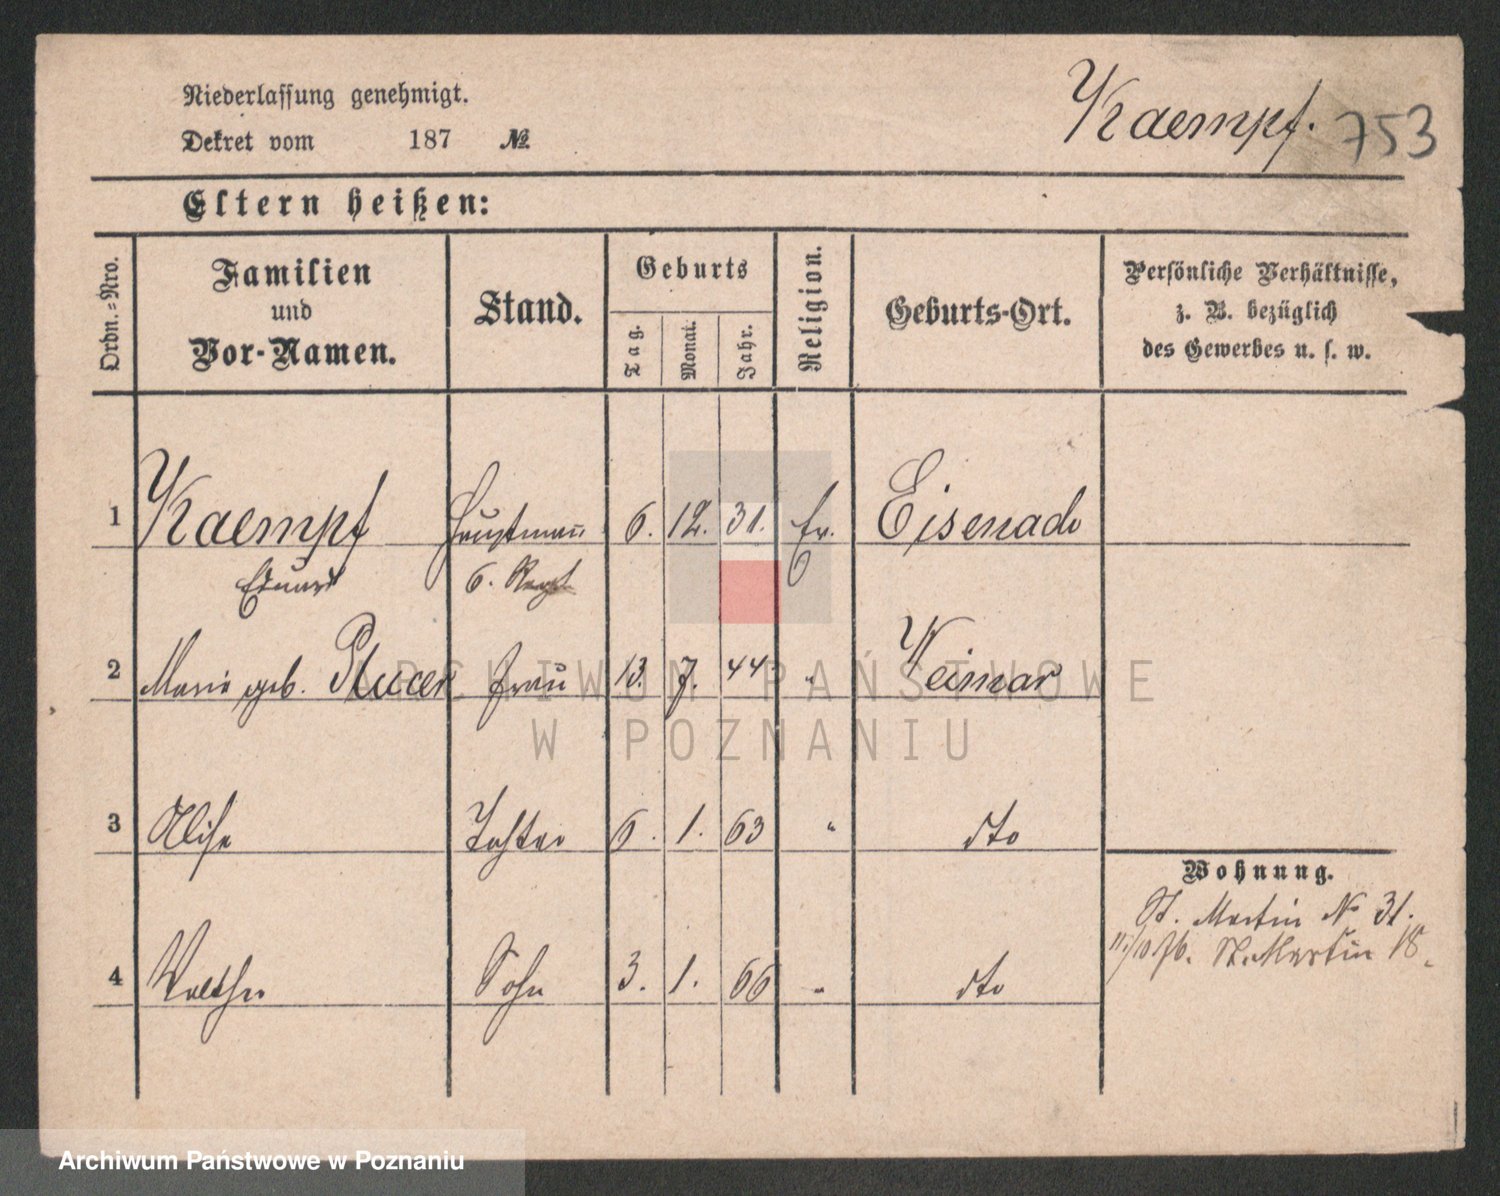 Niederlassung genehmigt.
Dekret vom 187 №
Kaempf. 753
Eltern heißen:
Ordn.-Nro.
Familien und Vor-Namen.
Stand.
Geburts
Tag. Monat. Jahr.
Religion.
Geburts-Ort.
Persönliche Verhältnisse,
z. B. bezüglich
des Gewerbes u. s. w.
1 Kaempf Hauptmann 6. 12. 31. Ev. Eisenach
Eduard 6. Regt
2 Marie geb. Frau 13. 7. 44 " Weimar
3 Elise Tochter 6. 1. 63 " dto
4 Walther Sohn 3. 1. 66 " dto
Wohnung.
St. Martin No 31.
11/10 76. St. Martin 18.
ARCHIWUM PAŃSTWOWE
W POZNANIU
Archiwum Państwowe w Poznaniu